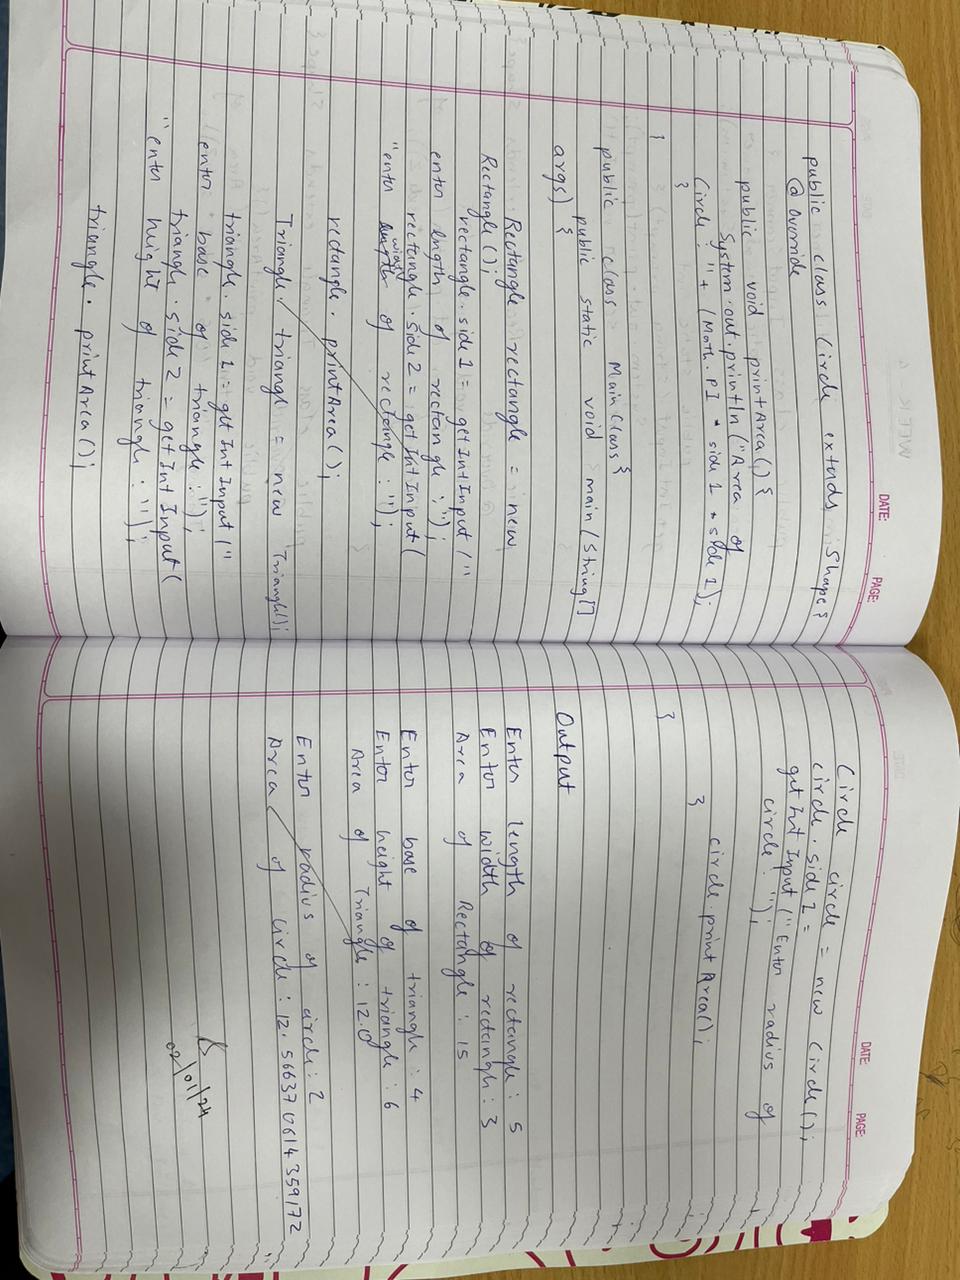 DATE: PAGE:
public class Circle extends Shape {
@Override
public void printArea() {
System.out.println("Area of
Circle : " + (Math.PI * side1 * side1);
}
}
public class MainClass {
public static void main(String[]
args) {
Rectangle rectangle = new
Rectangle();
rectangle.side1 = getIntInput("
enter length of rectangle : ");
rectangle.side2 = getIntInput(
"enter width of rectangle : ");
rectangle.printArea();
Triangle triangle = new Triangle();
triangle.side1 = getIntInput("
enter base of triangle : ");
triangle.side2 = getIntInput(
"enter height of triangle : ");
triangle.printArea();
DATE: PAGE:
Circle circle = new Circle();
circle.side1 =
getIntInput("Enter radius of
circle : ");
circle.printArea();
}
}
Output
Enter length of rectangle : 5
Enter width of rectangle : 3
Area of Rectangle : 15
Enter base of triangle : 4
Enter height of triangle : 6
Area of Triangle : 12.0
Enter radius of circle : 2
Area of circle : 12.566370614359172
02/01/24